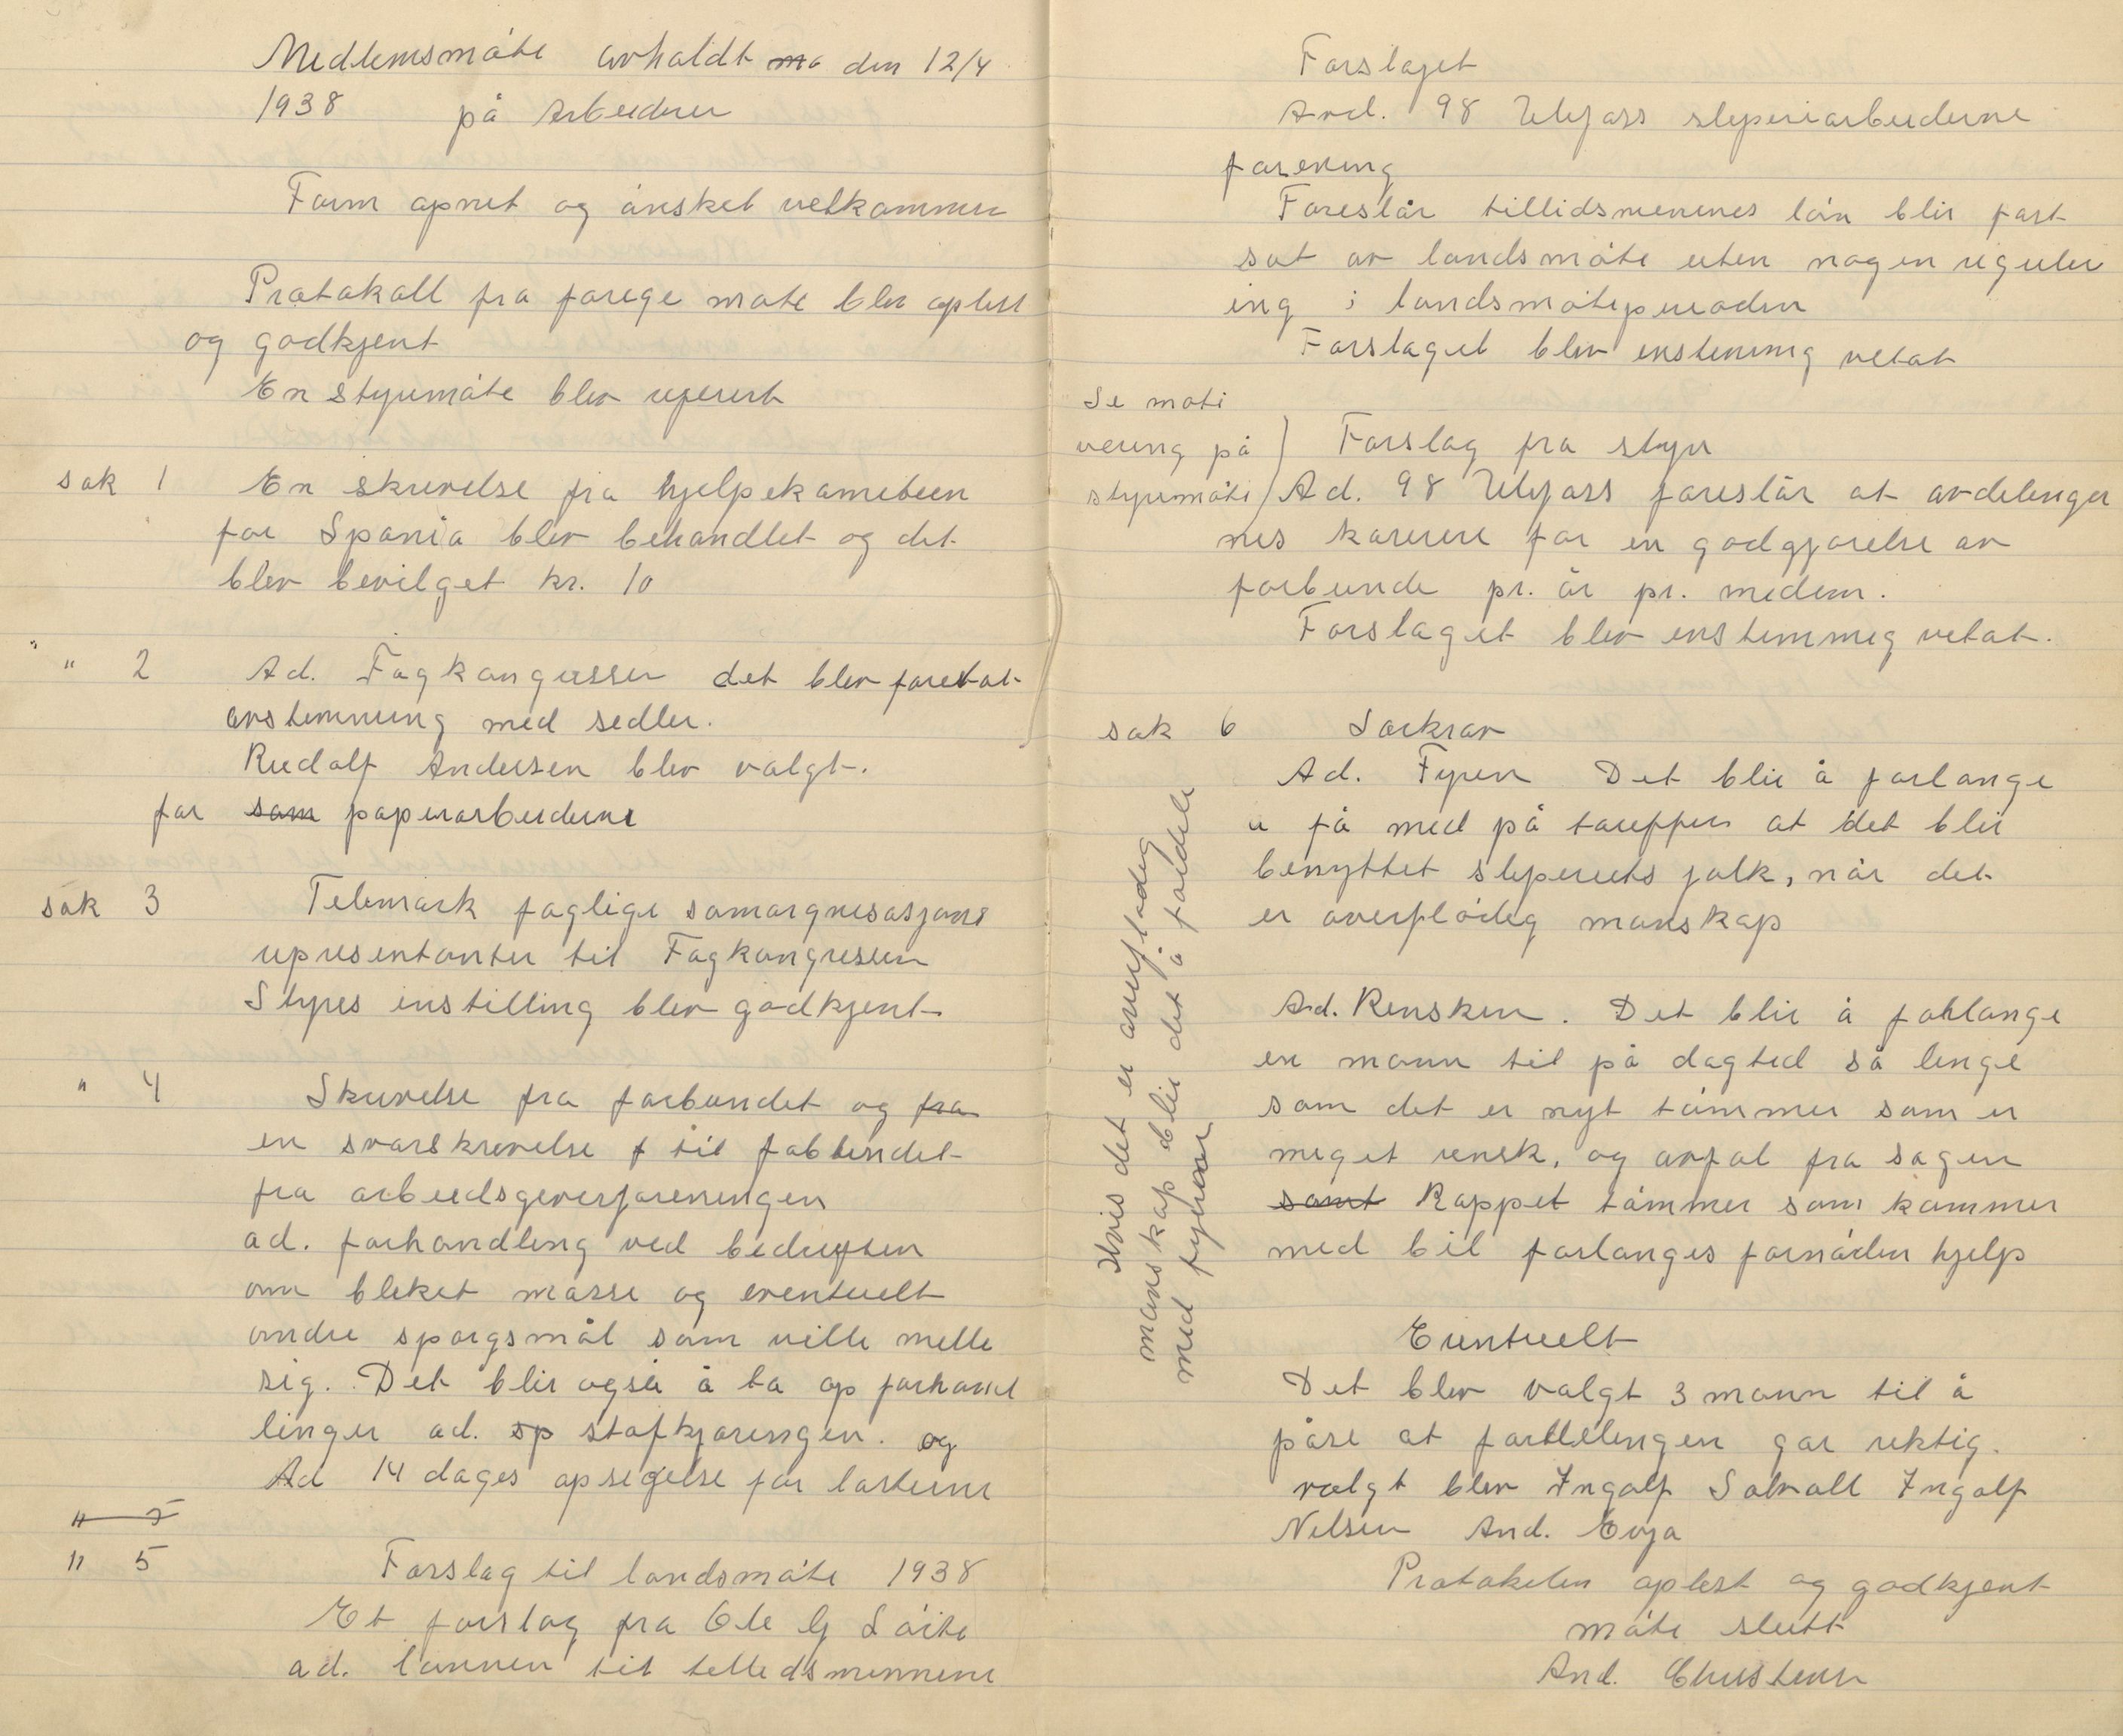 Medlemsmöte avholdt ma den 12/4
1938 på Arbeideren
Form åpnet og önsket velkommen
Protokoll fra forege møte blev oplest
og godkjent
En styremöte blev referert
sak 1 En skrivelse fra hjelpekometeen
for Spania blev behandlet og det
blev bevilget kr. 10
" " 2 Ad. Fagkongressen det blev foretat
avstemning med sedler.
Rudolf Andersen blev valgt.
for som papirarbeiderne
sak 3 Telemark faglige samorgnisasjons
representanter til Fagkongresen
Styres instilling blev godkjent
" 4 Skrivelse fra forbundet og fra
en svarskrivelse f til fobbundet
fra arbeidsgiverforeningen
ad. forhandling ved bedriften
om bleket masse og eventuelt
andre spørgsmål som ville melle
sig. Det blir også å ta op forhand
linger ad. sp stofkjøringen. og
Ad 14 dages opsigelse for lasterne
" 5
" 5 Forslag til landsmöte 1938
Et forslag fra Ole G Löite
ad. lønnen til telledsmennene
Forslaget
Avd. 98 Ulefoss sliperiarbeiderne
forening
Foreslår tillidsmenenes lön blir fast
sat av landsmöte uten nogen reguler
ing i landsmöteperioden
Forslaget blev enstemmig vetat
Se moti
vering på Forslag fra styre
styremöte Ad. 98 Ulefoss foreslår at avdelinger
nes kaserere får en godgjørelse av
forbunde pr. år pr. medem.
Forslaget blev enstemmig vetat.
sak 6 Særkrav
Ad. Fyren Det blir å forlange
å få med på tariffen at det blir
benyttet sliperiets folk, når det
er overflödig manskap
Hvis det er overflödig
manskap blir det å fordele
med fyren
Ad. Rensken. Det blir å fohlange
en mann til på dagtid så lenge
som det er nyt tömmer som er
meget rensk, og avfal fra sagen
samt Kappet tömmer som kommer
med bil forlanges fornöden hjelp
Eventuelt
Det blev valgt 3 mann til å
påse at fordelingen går riktig.
valgt blev Ingolf Solvoll Ingolf
Nilsen And. Evja
Protokolen oplest og godkjent
möte slutt
And. Christensen